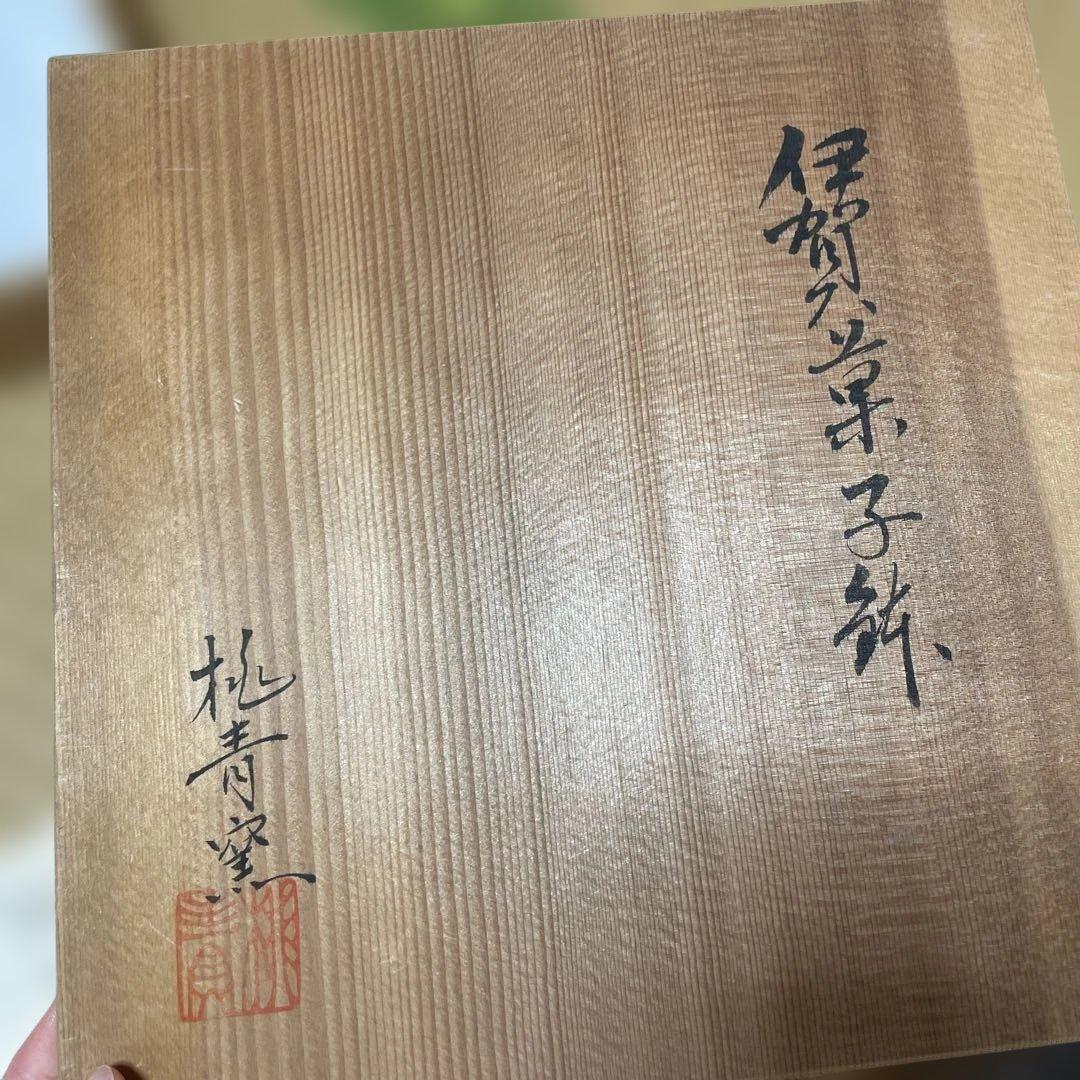 伊賀菓子鉢
桃青窯
桃青